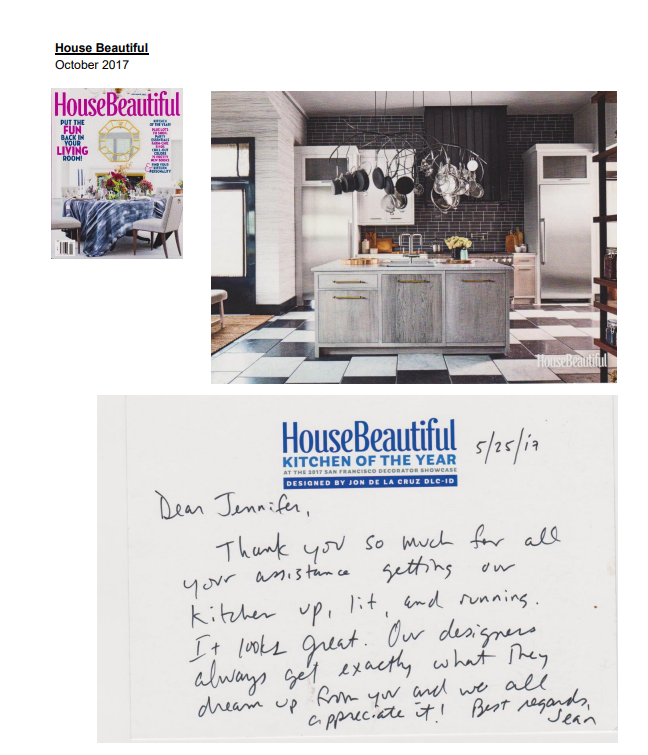 House Beautiful
October 2017
HouseBeautiful
PUT THE
FUN
BACK IN
YOUR
LIVING
ROOM!
KITCHEN
OF THE YEAR!
HouseBeautiful
HouseBeautiful
KITCHEN OF THE YEAR
AT THE 2017 SAN FRANCISCO DECORATOR SHOWCASE
DESIGNED BY JON DE LA CRUZ DLC-ID
5/25/17
Dear Jennifer,
Thank you so much for all
your assistance getting our
kitchen up, lit, and running.
It looks great. Our designers
always get exactly what they
dream up from you and we all
appreciate it! Best regards,
Jean